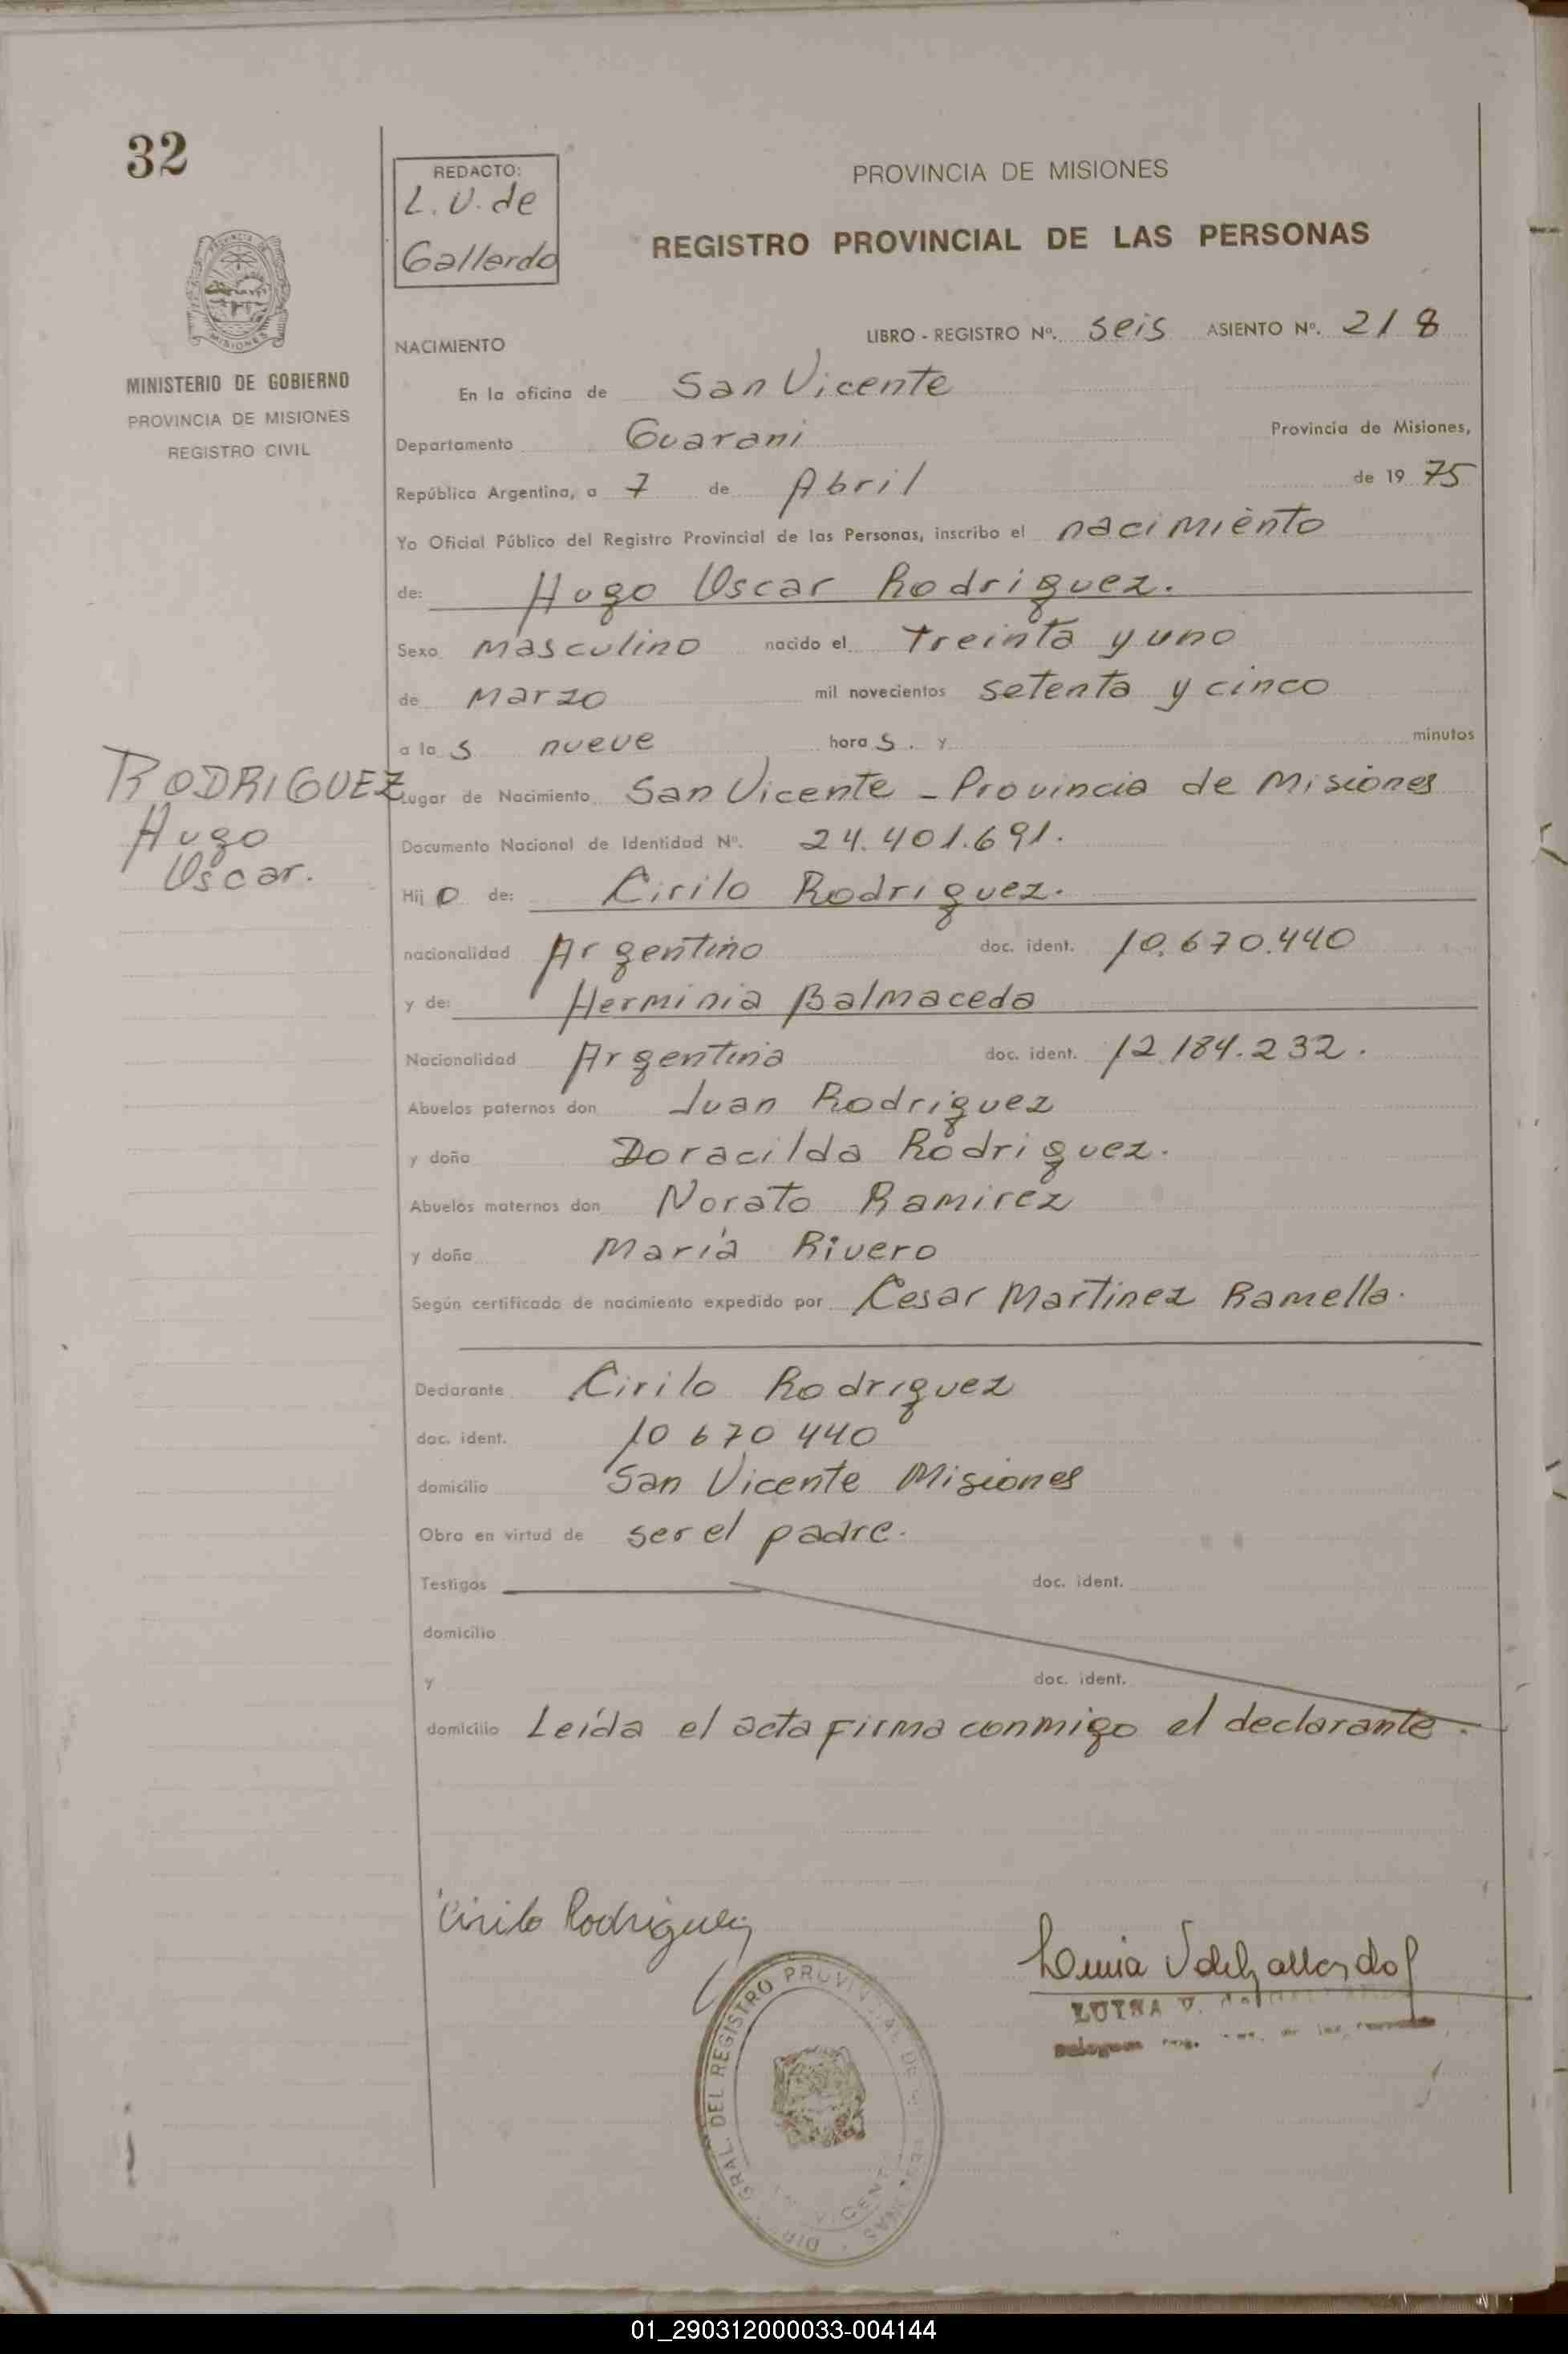 32
REDACTO:
L. V. de
Gallardo
PROVINCIA DE MISIONES
REGISTRO PROVINCIAL DE LAS PERSONAS
MINISTERIO DE GOBIERNO
PROVINCIA DE MISIONES
REGISTRO CIVIL
NACIMIENTO
LIBRO - REGISTRO Nº. seis ASIENTO Nº. 218
En la oficina de San Vicente
Departamento Guarani Provincia de Misiones,
República Argentina, a 7 de Abril de 1975
Yo Oficial Público del Registro Provincial de las Personas, inscribo el nacimiento
de: Hugo Oscar Rodriguez.
Sexo masculino nacido el treinta y uno
de marzo mil novecientos setenta y cinco
a las nueve horas. y minutos
RODRIGUEZ
Hugo
Oscar.
Lugar de Nacimiento San Vicente - Provincia de Misiones
Documento Nacional de Identidad Nº. 24.401.691.
Hijo de: Cirilo Rodriguez.
nacionalidad Argentino doc. ident. 10.670.440
y de: Herminia Balmaceda
Nacionalidad Argentina doc. ident. 12.184.232.
Abuelos paternos don Juan Rodriguez
y doña Doracilda Rodriguez.
Abuelos maternos don Norato Ramirez
y doña María Rivero
Según certificado de nacimiento expedido por Cesar Martinez Ramella.
Declarante Cirilo Rodriguez
doc. ident. 10 670 440
domicilio San Vicente Misiones
Obra en virtud de ser el padre.
Testigos doc. ident.
domicilio
y doc. ident.
domicilio Leída el acta firma conmigo el declarante.
Cirilo Rodriguez
LUISA V.
DIR. GRAL. DEL REGISTRO PROVINCIAL DE LAS PERSONAS
01_290312000033-004144